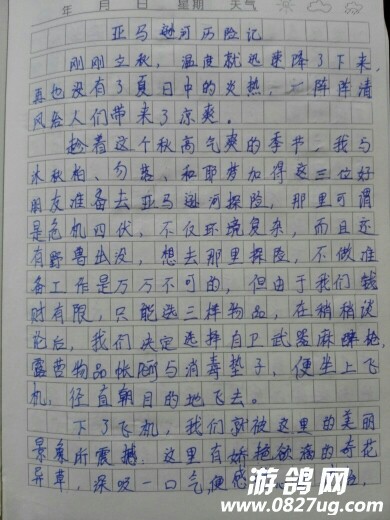 年 月 日 星期 天气
亚马逊河历险记
刚刚立秋，温度就迅速降了下来，
再也没有了夏日中的炎热，一阵阵清
风给人们带来了凉爽。
趁着这个秋高气爽的季节，我与
水秋柏、勿落、和耶劳加得这三位好
朋友准备去亚马逊河探险，那里可谓
是危机四伏，不仅环境复杂，而且还
有野兽出没，想去那里探险，不做准
备工作是万万不可的，但由于我们钱
财有限，只能选三样物品，在稍稍谈
论后，我们决定选择自卫武器麻醉枪，
露营物品帐篷与消毒垫子，便坐上飞
机，径直朝目的地飞去。
下了飞机，我们就被这里的美丽
景象所震撼：这里有娇艳欲滴的奇花
异草，深吸一口气，便感
游鸽网
www.0827ug.com